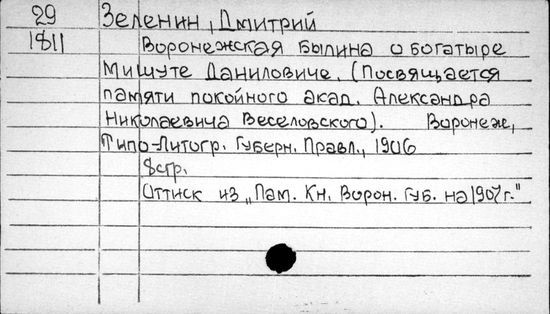 29 Зеленин, Дмитрий
1811 Воронежская былина о богатыре
Мишуте Даниловиче. (Посвящается
памяти покойного акад. Александра
Николаевича Веселовского). Воронеж,
Типо-Литогр. Губерн. Правл., 1906
8стр.
Оттиск из „Пам. Кн. Ворон. Губ. на 1907г."